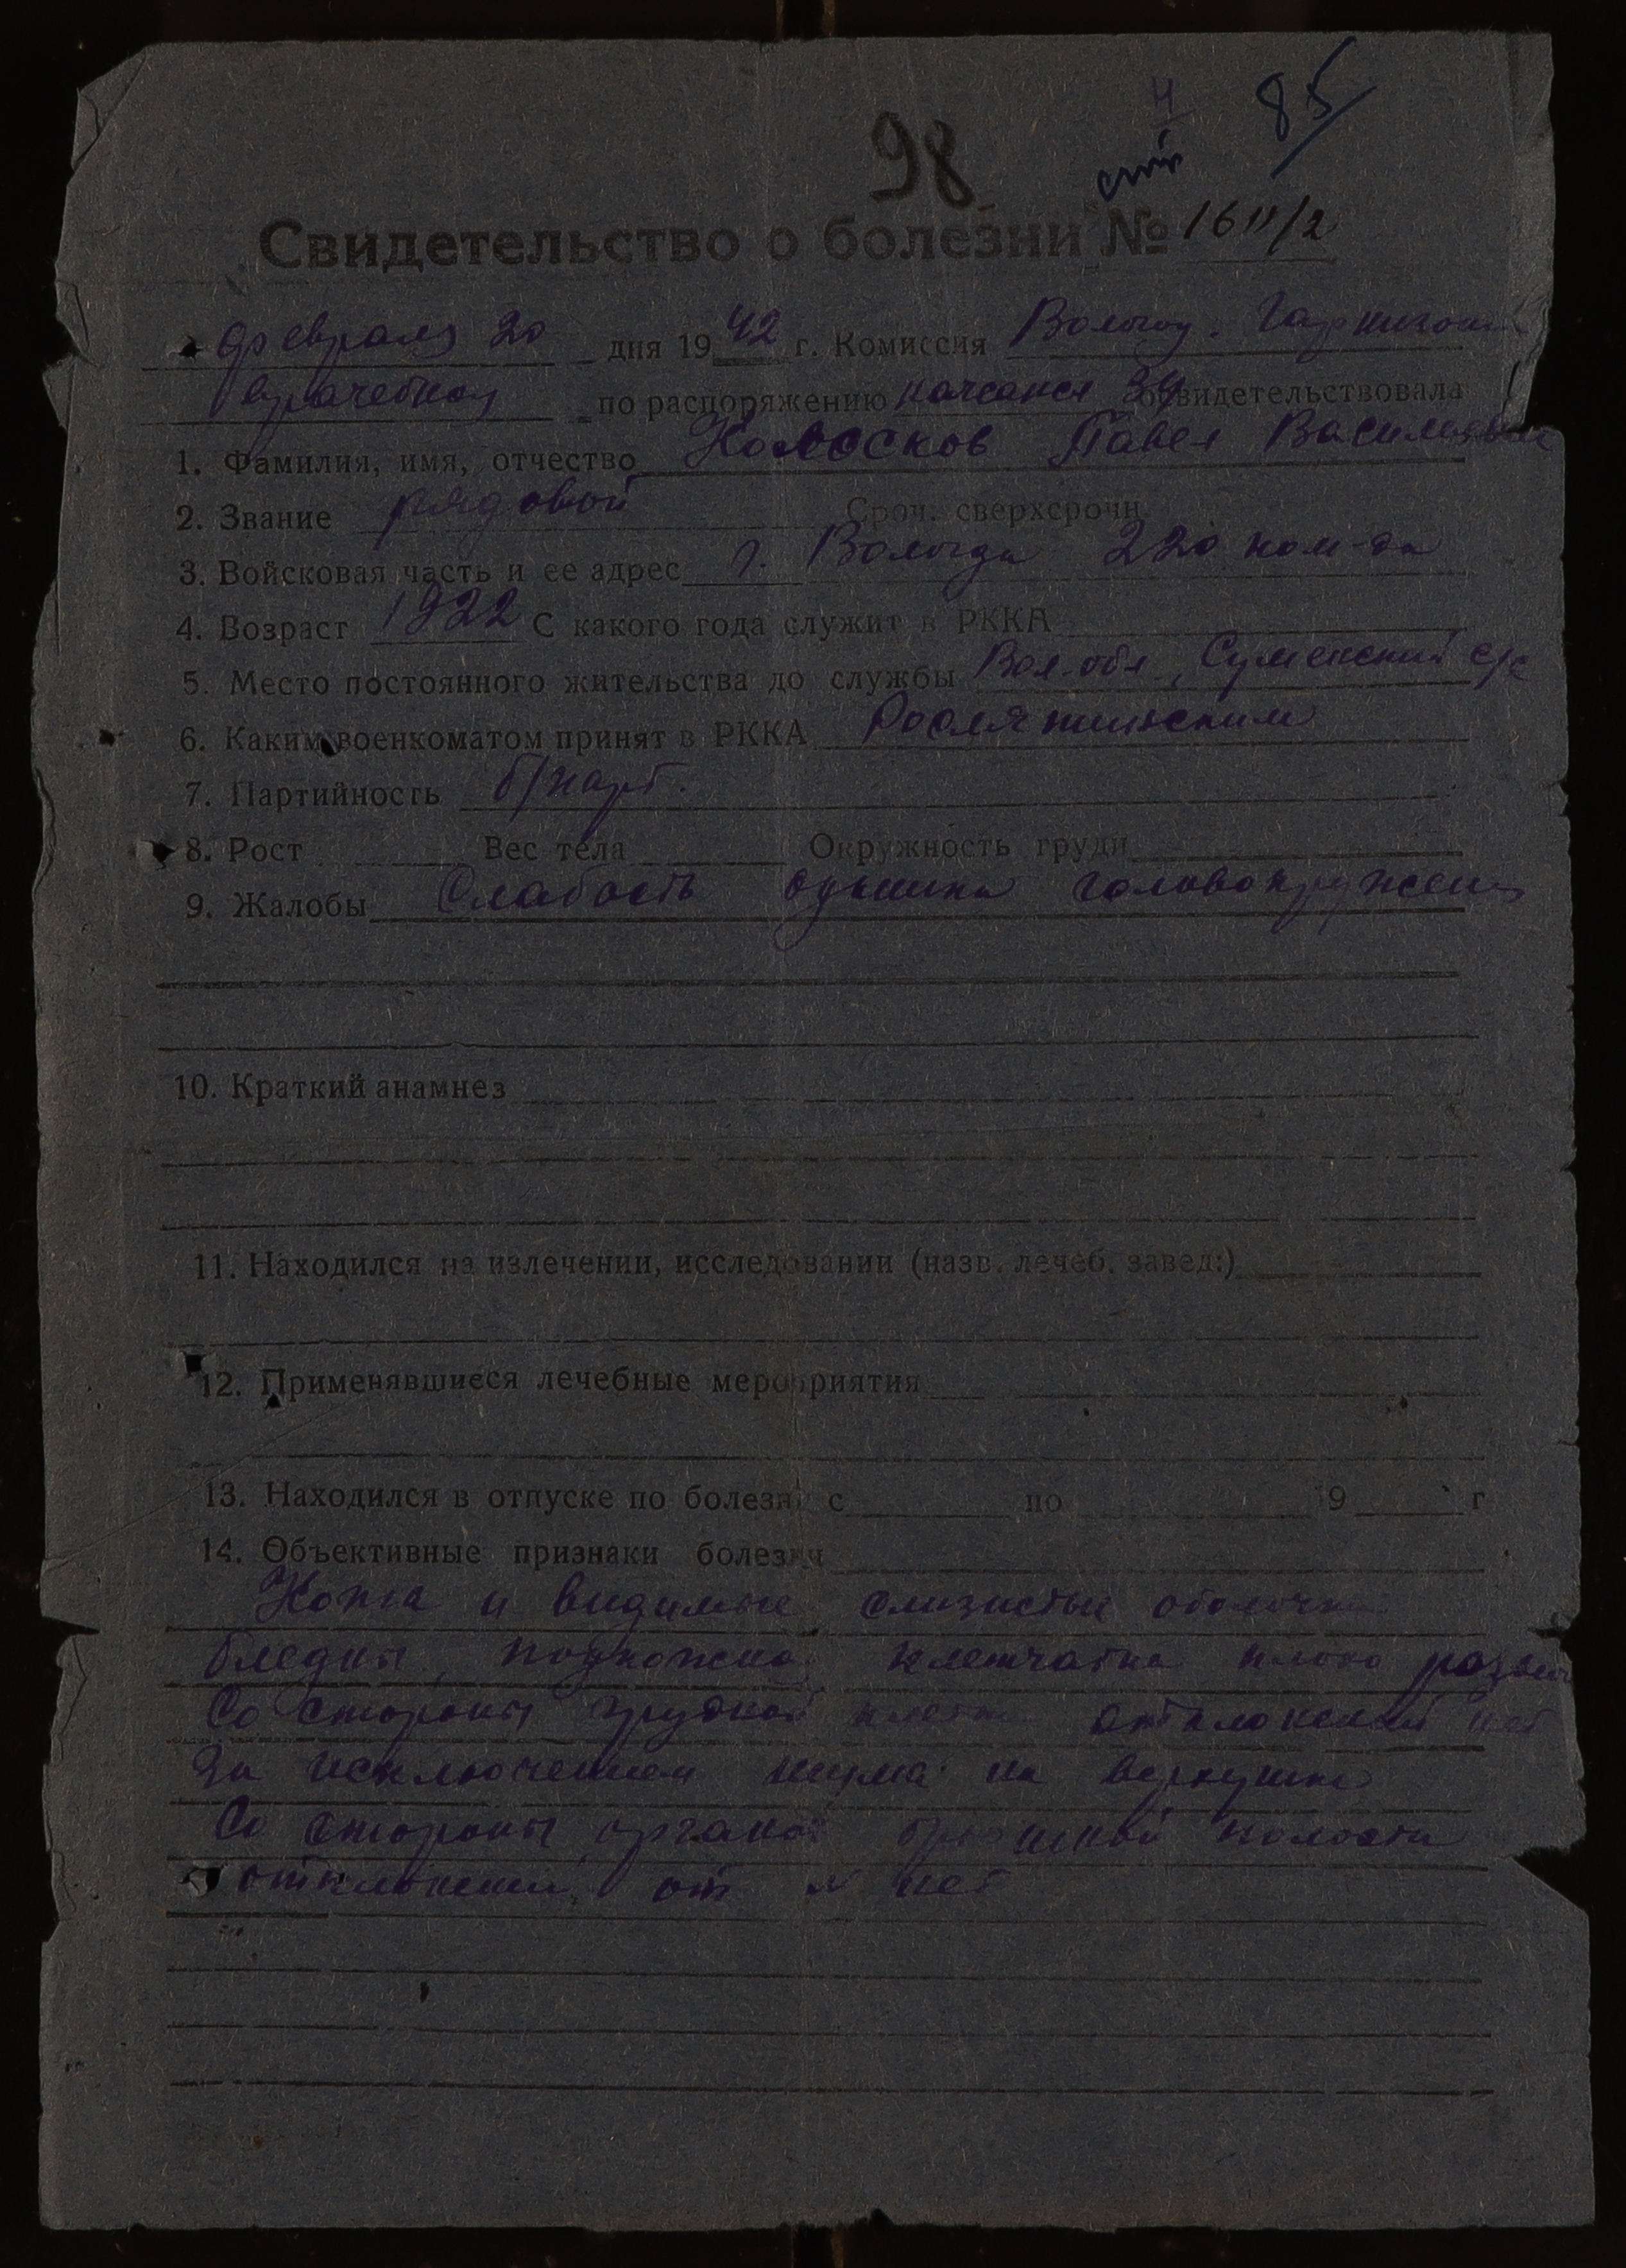 85
98
Свидетельство о болезни № 1611/2
февраля 20 дня 1942 г. Комиссия Волог. Гарнизон
врачебная по распоряжению начсанси 34 освидетельствовала
1. Фамилия, имя, отчество Колосков Павел Васильевич
2. Звание рядовой Сроч. сверхсрочн
3. Войсковая часть и ее адрес г. Вологда 220 ком-да
4. Возраст 1922 С какого года служит в РККА
5. Место постоянного жительства до службы Вол. обл., Суменский с/с
6. Каким военкоматом принят в РККА Рослятинским
7. Партийность б/парт.
8. Рост Вес тела Окружность груди
9. Жалобы Слабость одышка головокружен
10. Краткий анамнез
11. Находился на излечении, исследовании (назв. лечеб. завед:)
12. Применявшиеся лечебные мероприятия
13. Находился в отпуске по болезни с по 19 г
14. Объективные признаки болезни
Кожа и видимые слизистые оболочки
бледны, подкожная клетчатка плохо развит
Со стороны грудной клетки отклонений нет
За исключением шума на верхушке
Со стороны органов брюшной полости
отклонений от N нет